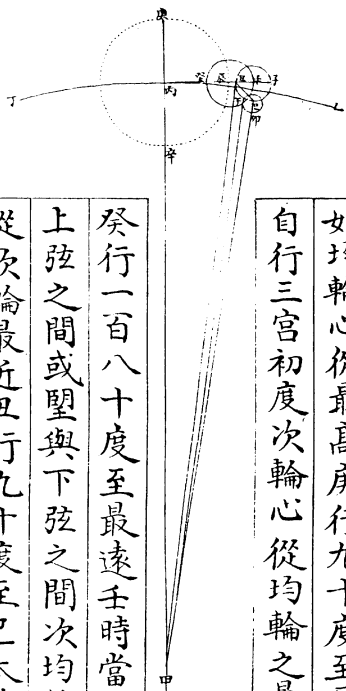 庚
丁
丙
癸
子
乙
辛
甲
如均輪心從最高庚行九十度至
自行三宮初度次輪心從均輪之最
癸行一百八十度至最遠壬時當
上弦之間或朢與下弦之間次均
從次輪最近丑行九十度至巳